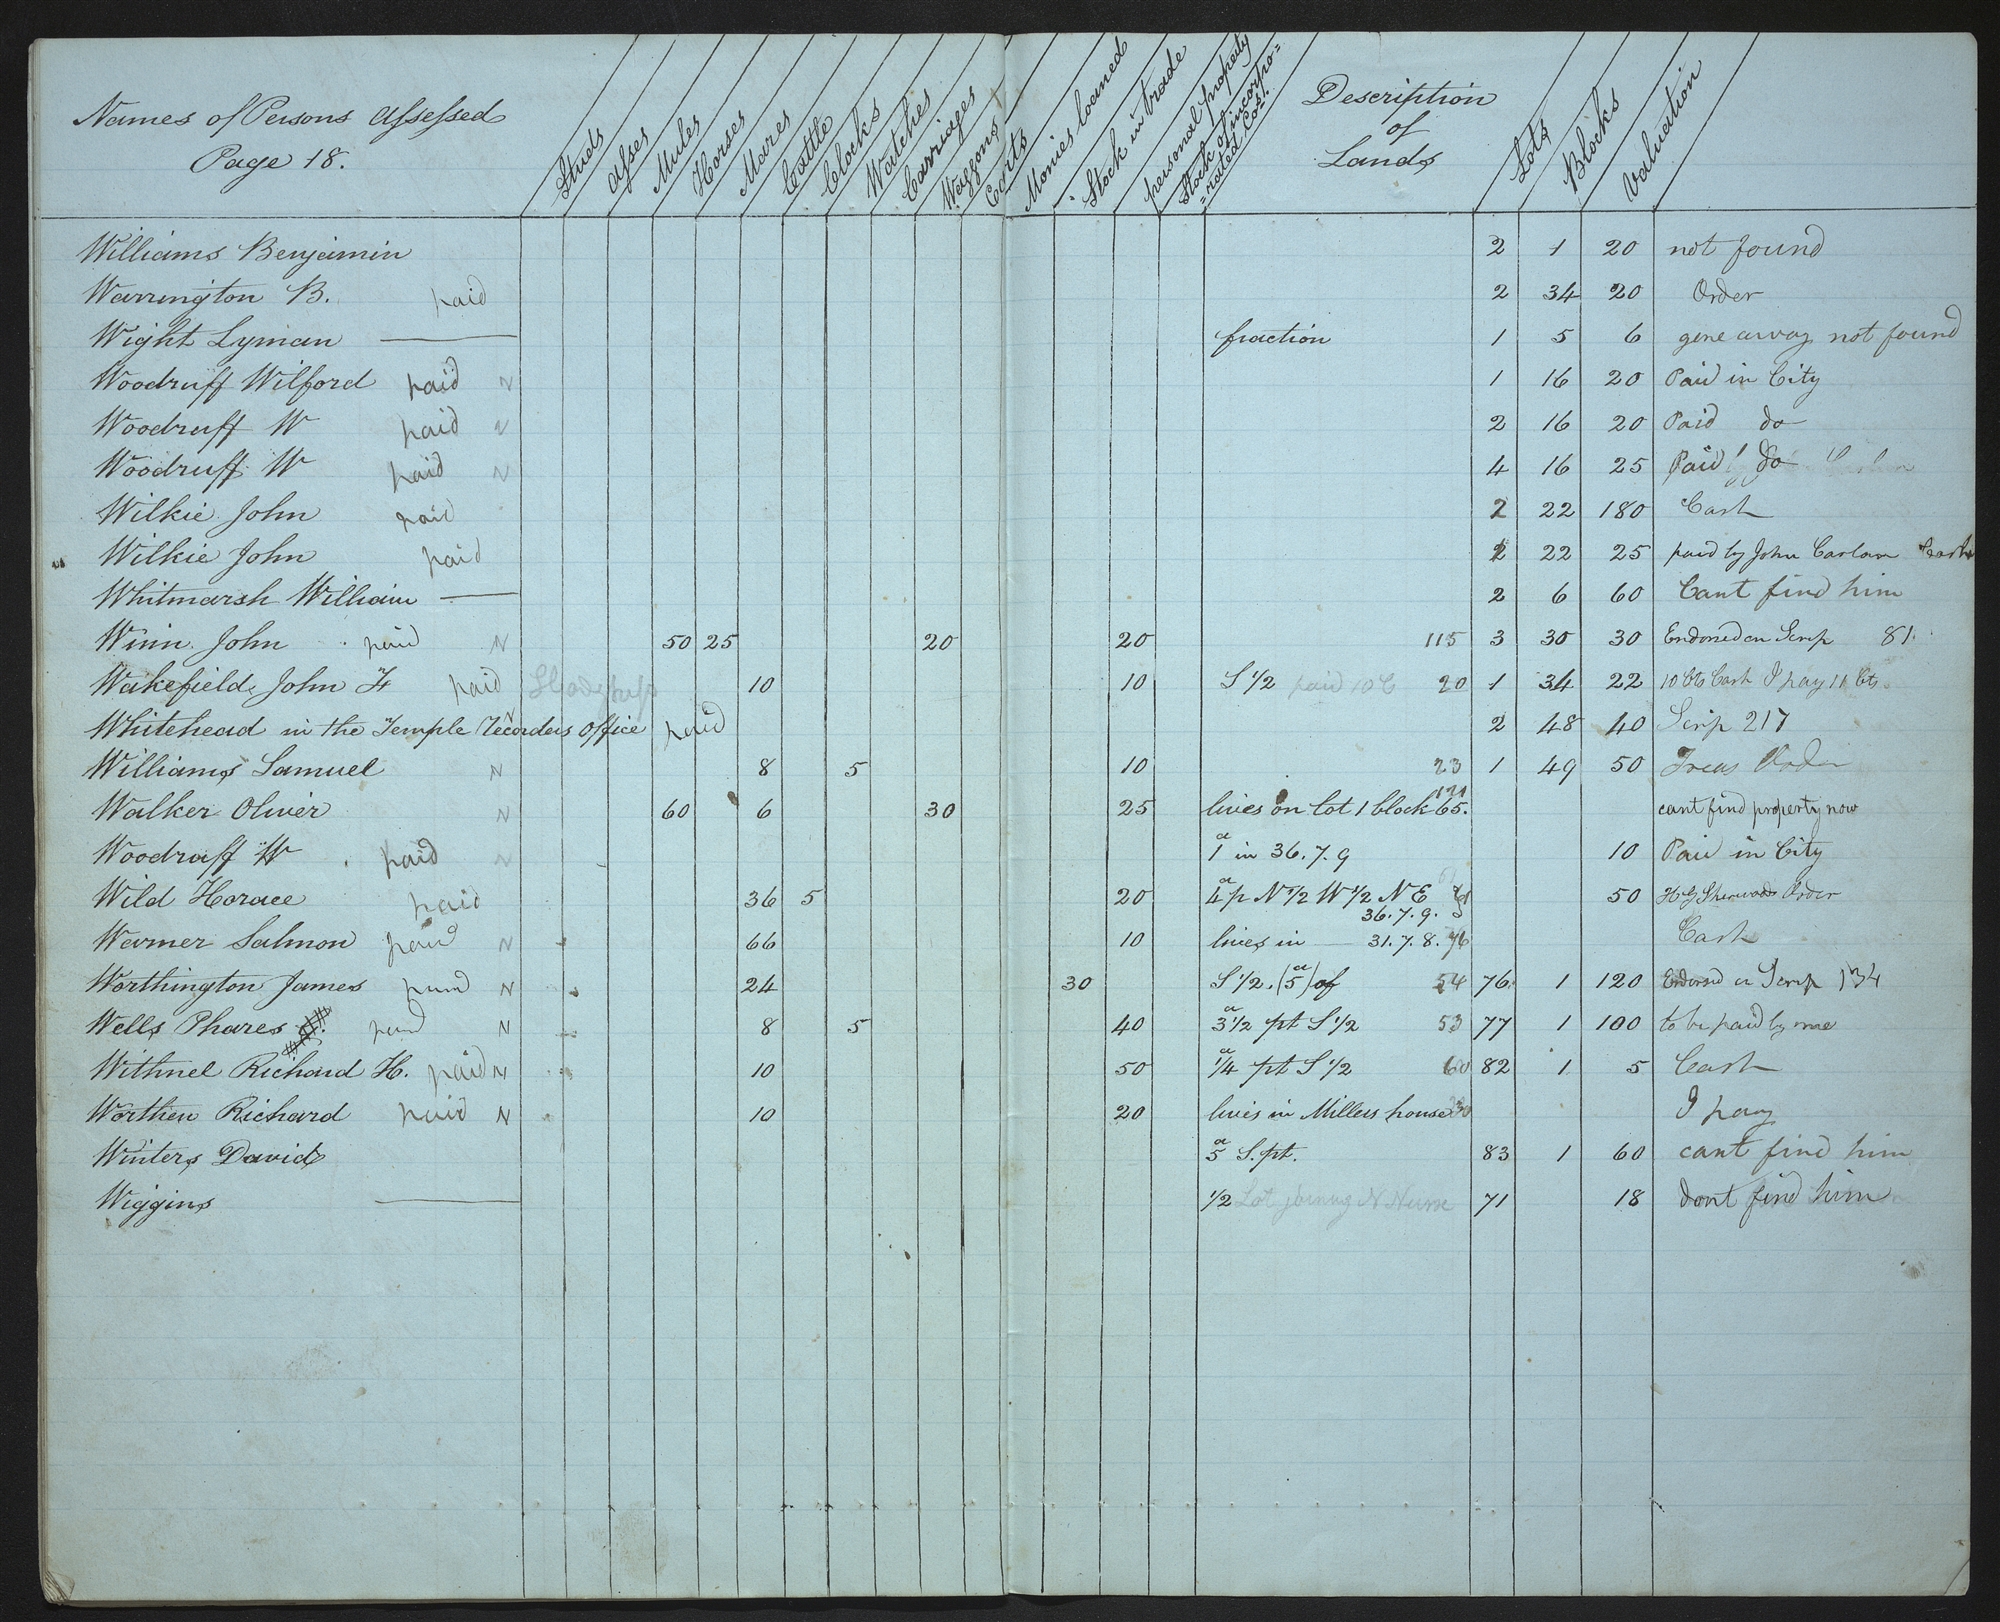 Names of Persons assessed
Page 18.
Studs
asses
Mules
Horses
Mares
Cattle
Clocks
Watches
Carriages
Waggons
Carts
Monies loaned
Stock in trade
personal property
Stock of incorpo=
=rated Cos!
Description
of
Lands
Lots
Blocks
Valuation
Williams Benjamin 2 1 20 not found
Warrington B. paid 2 34 20 Order
Wight Lyman fraction 1 5 6 gone away not found
Woodruff Wilford paid N 1 16 20 Paid in City
Woodruff W paid N 2 16 20 Paid do
Woodruff W paid N 4 16 25 Paid do
Wilkie John paid 2 22 180 Cash
Wilkie John paid 2 22 25 paid by John Carlow Cash
Whitmarsh William 2 6 60 Cant find him
Winn John paid N 50 25 20 20 115 3 30 30 Endorsed on Scrip 81.
Wakefield John F paid 10 10 S 1/2 paid 10 C 20 1 34 22 10 Cts Cash I pay 11 Cts.
Whitehead in the Temple Recorders office paid N 2 48 40 Scrip 217
Williams Samuel N 8 5 10 23 1 49 50 Treas Order
Walker Oliver N 60 6 30 25 lives on lot 1 block 65. 121 cant find property now
Woodruff W paid N 1 a in 36. 7. 9 10 Paid in City
Wild Horace paid 36 5 20 4 a p N 1/2 W 1/2 N E 36. 7. 9. 61 50 H G Sherwoods Order
Warner Salmon paid N 66 10 lives in — 31. 7. 8. 76 Cash
Worthington James paid N 24 30 S 1/2. (5 a) of 54 76. 1 120 Endorsed on Scrip 134
Wells Phares paid N 8 5 40 3 1/2 a pt S 1/2 53 77 1 100 to be paid by me
Withnel Richard H. paid N 10 50 1/4 a pt S 1/2 60 82 1 5 Cash
Worthen Richard paid N 10 20 lives in Millers house 30 I pay
Winters David 5 a S. pt. 83 1 60 cant find him
Wiggins 1/2 Lot joining N Nurse 71 18 dont find him